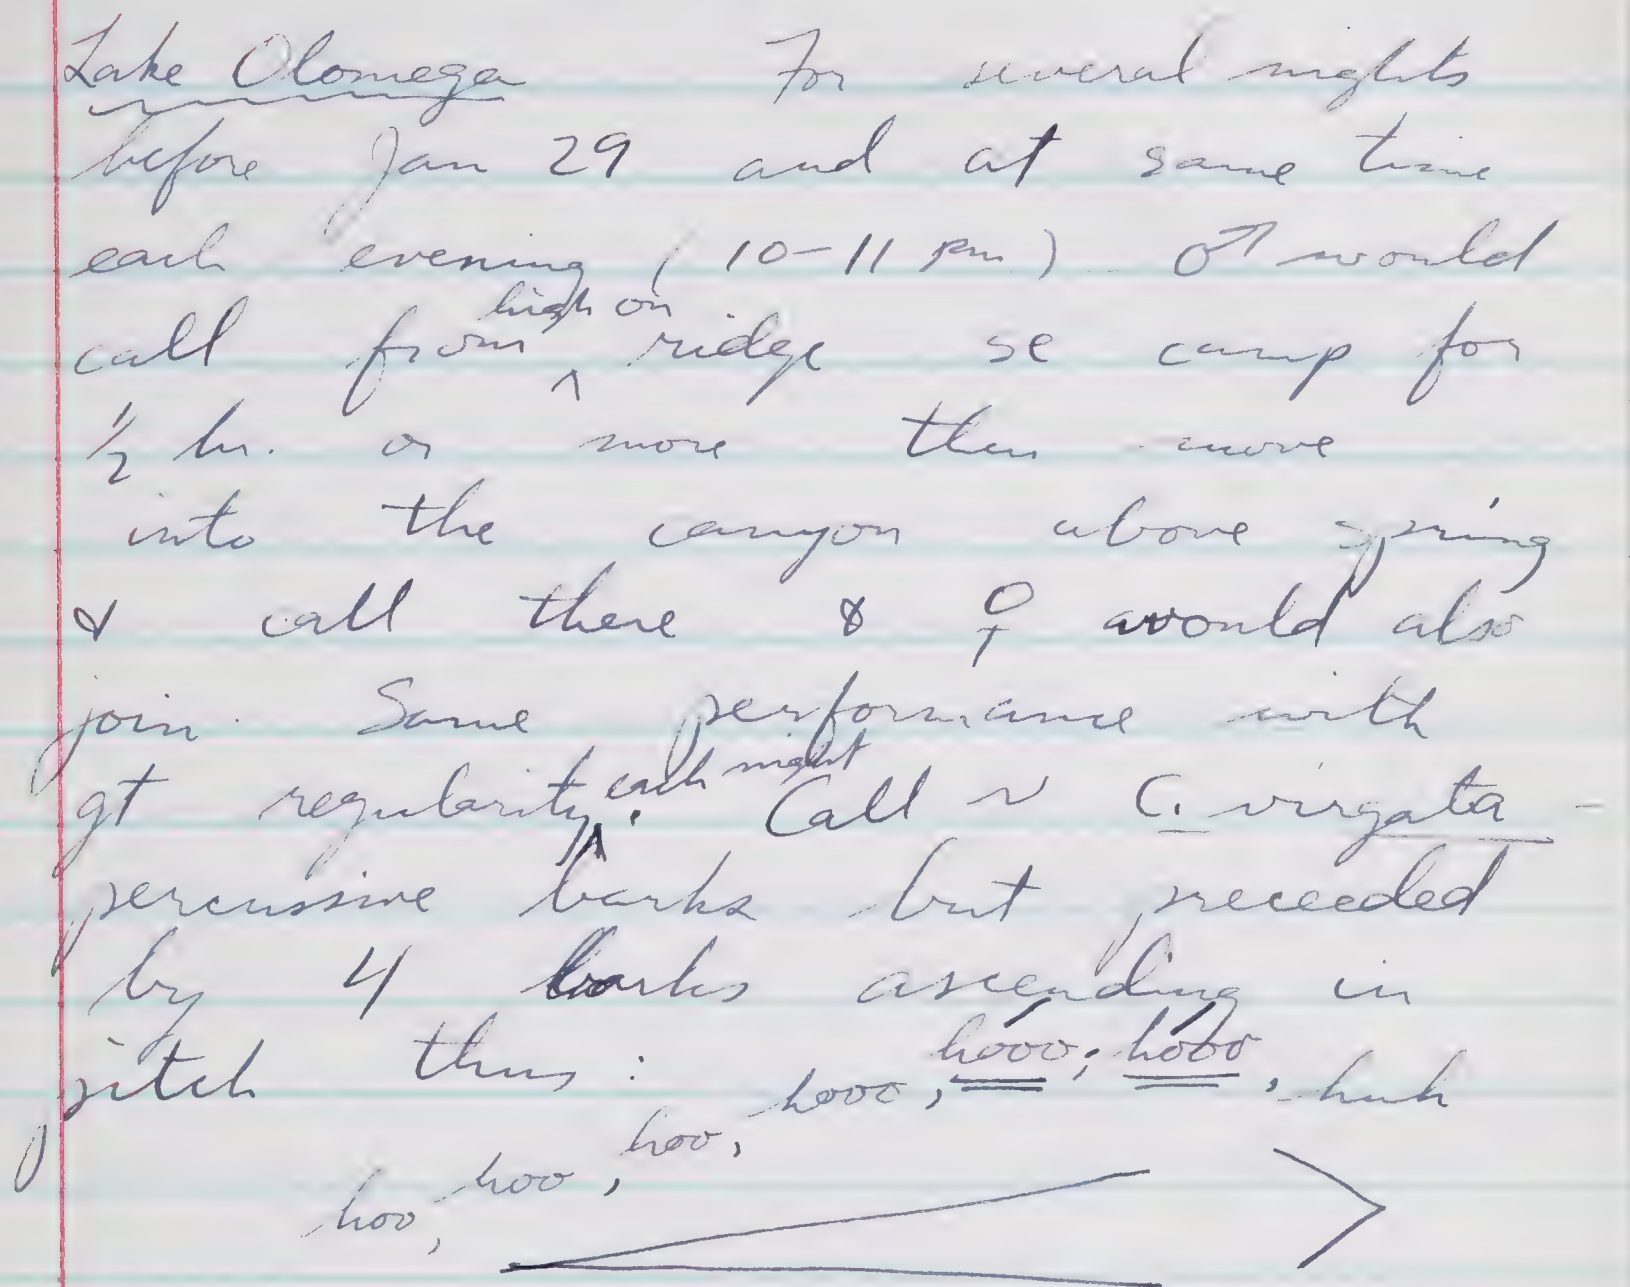 Lake Olomega For several nights
before Jan 29 and at same time
each evening (10-11 pm) ♂ would
call from ^high on ridge se camp for
1/2 hr. or more then move
into the canyon above spring
& call there & ♀ would also
join. Same performance with
gt regularity ^each night. Call ~ C. virgata -
percussive barks but preceeded
by 4 barks ascending in
pitch thus:
hoo, hoo, hoo, hooo, hóoo; hóoo, huh